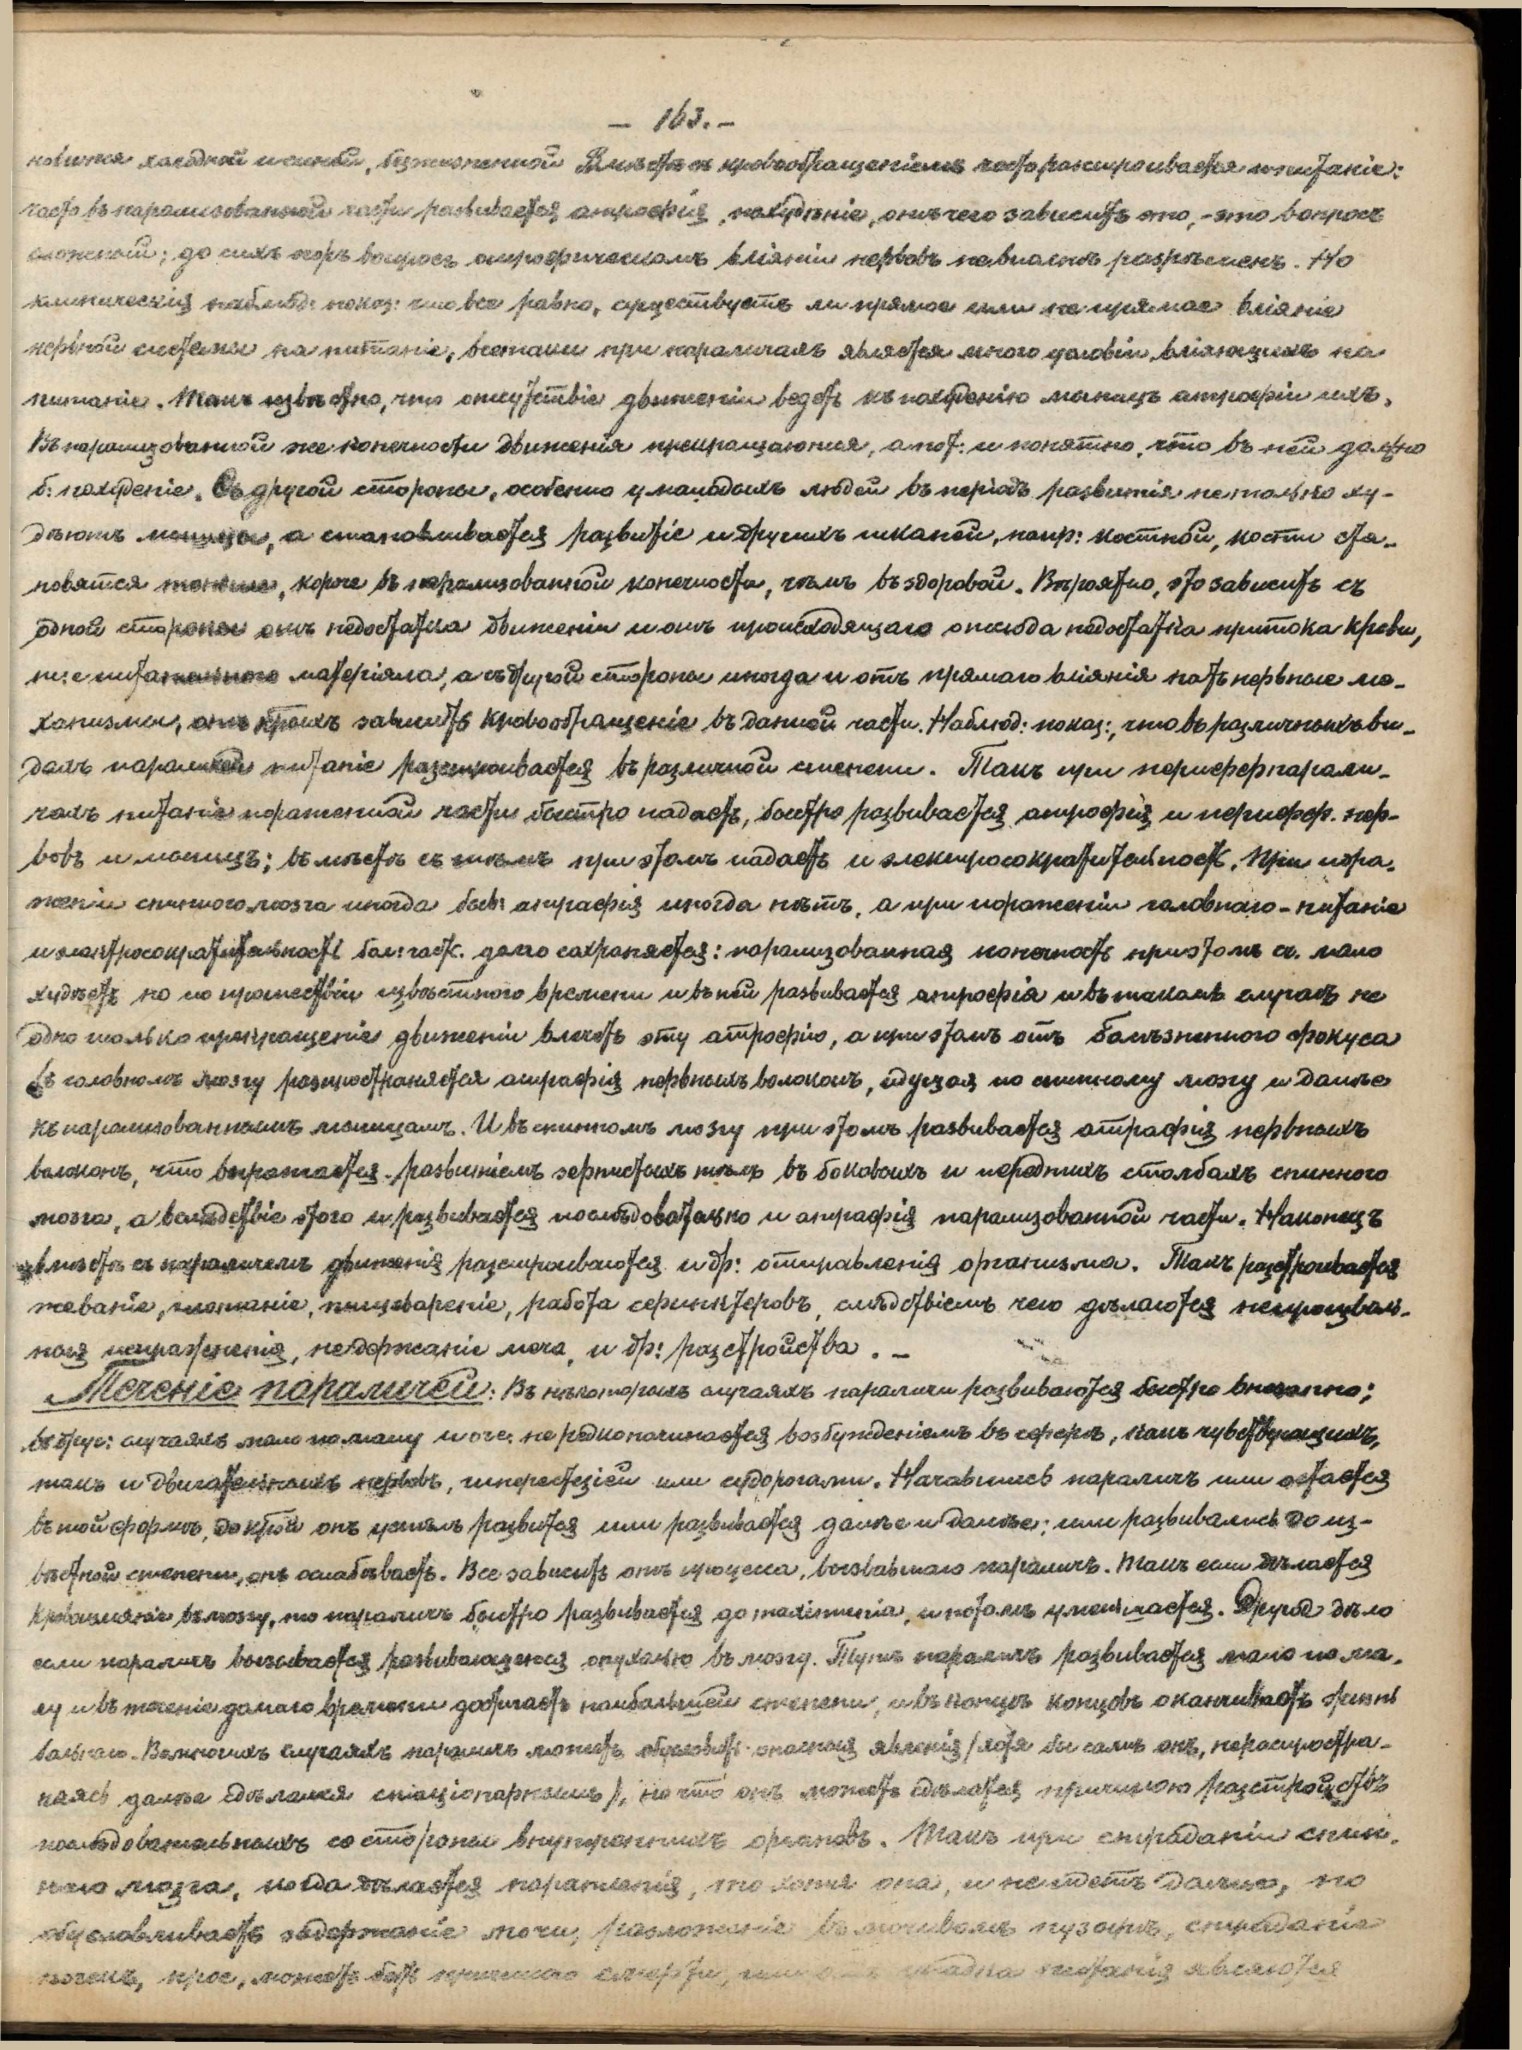 — 163. —
новится холодной и синей, безжизненной Вмѣстѣ съ кровообращеніемъ часто разстраивается и питаніе:
часто въ парализованной части развивается атрофія, похуденіе, отъ чего зависитъ это, - это вопросъ
сложный; до сихъ поръ вопросъ о трофическомъ вліяніи нервовъ не вполнѣ разрѣшенъ. Но
клиническія наблюд: показ: что все равно, существуетъ ли прямое или не прямое вліяніе
нервной системы на питаніе, всетаки при параличахъ является много условій, вліяющихъ на
питаніе. Такъ извѣстно, что отсутствіе движеній ведетъ къ похуденію мышцъ атрофіи ихъ.
Въ парализованной же конечности движенія прекращаются, а пот: и понятно, что въ ней должно
б: похуденіе. Съ другой стороны, особенно у молодыхъ людей въ періодъ развитія не только ху-
дѣютъ мышцы, а становливается развитіе и другихъ тканей, напр: костной, кости ста-
новятся тоньше, короче въ парализованной конечности, чѣмъ въ здоровой. Вѣроятно, это зависитъ съ
одной стороны отъ недостатка движеній и отъ происходящаго отсюда недостатка притока крови,
т: е питательнаго матеріяла, а съ другой стороны иногда и отъ прямаго вліянія на тѣ нервные ме-
ханизмы, отъ кѣрыхъ зависитъ кровообращеніе въ данной части. Наблюд: показ:, что въ различныхъ ви-
дахъ параличей питаніе разстраивается въ различной степени. Такъ при периферпарали-
чахъ питаніе пораженной части быстро падаетъ, быстро развивается атрофія и периффр. нер-
вовъ и мышцъ; вмѣстѣ съ тѣмъ при этомъ падаетъ и электросократительность. При пора-
женіи спинного мозга иногда быв: атрафія иногда нѣтъ, а при пораженіи головнаго - питаніе
и электросократительность бол: част. долго сохраняется: парализованная конечность при этомъ оч. мало
худѣетъ но по прошествіи извѣстнаго времени и въ ней развивается атрофія и въ такомъ случаѣ не
одно только прекращеніе движеній влечетъ эту атрофію, а при этомъ отъ болѣзненного фокуса
въ головномъ мозгу распространяется атрафія нервныхъ волоконъ, идущая по спинному мозгу и далѣе
къ парализованнымъ мышцамъ. И въ спинномъ мозгу при этомъ развивается атрафія нервныхъ
волоконъ, что выражается развитіемъ зернистыхъ тѣлъ въ боковыхъ и переднихъ столбахъ спинного
мозга, а вслѣдствіе этого и развивается послѣдовательно и атрафія парализованной части. Наконецъ
вмѣстѣ съ параличемъ движенія разстраиваются и др: отправленія организма. Такъ разстраивается
жеваніе, глотаніе, пищевареніе, работа сфинктеровъ, слѣдствіемъ чего дѣлаются непроизволь-
ныя испражненія, недержаніе мочи, и др: разстройства. —
Теченіе параличей: Въ нѣкоторыхъ случаяхъ параличи развиваются быстро внезапно;
въ друг: случаяхъ мало помалу и оч: нередко начинается возбужденіемъ въ сферѣ, какъ чувствующихъ,
такъ и двигательныхъ нервовъ, гиперестезіей или судорогами. Начавшись параличъ или остается
въ той формѣ, до кѣрой онъ успѣлъ развиться или развивается далѣе и далѣе; или развивались до из-
вѣстной степени, онъ ослабѣваетъ. Все зависитъ отъ процесса, вызвавшаго параличъ. Такъ если дѣлается
кровоизліяніе въ мозгу, то параличъ быстро развивается до maximumа, и потомъ уменьшается. Другое дѣло
если параличъ вызывается развивающеюся опухолью въ мозгу. Тутъ параличъ развивается мало пома-
лу и въ теченіе долгаго времени достигаетъ наибольшей степени, и въ концѣ концовъ оканчиваетъ жизнь
больнаго. Во многихъ случаяхъ параличъ можетъ обусловить опасныя явленія / хотя бы самъ онъ, нераспростра-
няясь далѣе сдѣлался стаціонарнымъ /, но что онъ можетъ сдѣлаться причиною разстройствъ
послѣдовательныхъ со стороны внутреннихъ органовъ. Такъ при страданіи спин-
ного мозга, когда дѣлается параплегія, то хотя она, и не идетъ дальше, но
обусловливаетъ задержаніе мочи, разложеніе въ мочевомъ пузырѣ, страданіе
почекъ, проч, можетъ быть причиною смерти, или отъ упадка питанія являются